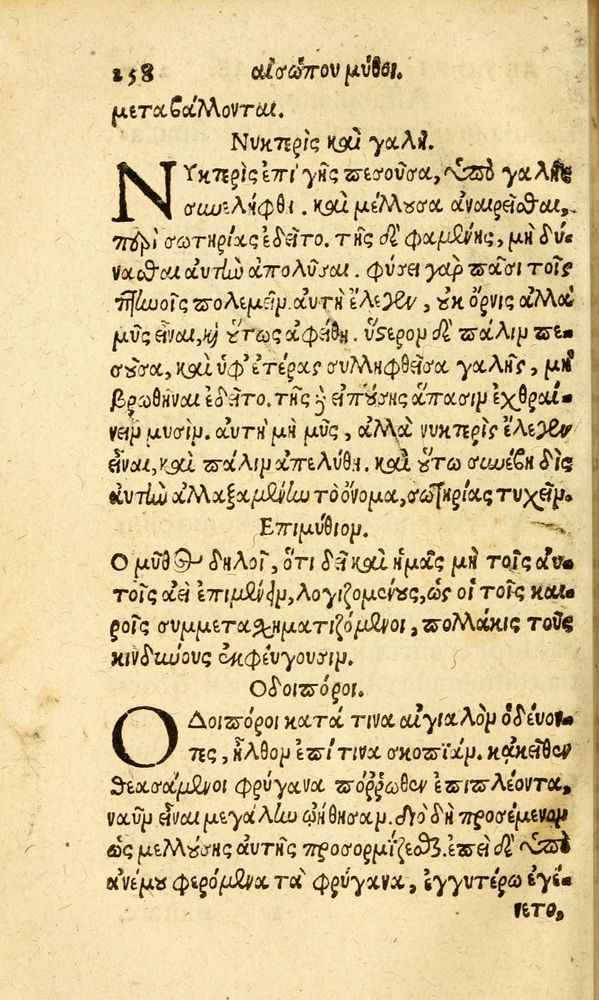 258 αἰσώπου μύθοι.
μεταβάλλονται.
Νυκτερὶς καὶ γαλῆ.
ΝΥκτερὶς ἐπὶ γῆς πεσοῦσα, ὑπὸ γαλῆς
συνελήφθη. καὶ μέλλουσα ἀναιρεῖσθαι,
περὶ σωτηρίας ἐδεῖτο. τῆς δὲ φαμένης, μὴ δύ-
νασθαι αὐτὴν ἀπολῦσαι. φύσει γὰρ πᾶσι τοῖς
πτηνοῖς πολεμεῖν. αὐτὴ ἔλεγεν, οὐκ ὄρνις ἀλλὰ
μῦς εἶναι, καὶ οὕτως ἀφείθη. ὕστερον δὲ πάλιν πε-
σοῦσα, καὶ ὑφ' ἑτέρας συλληφθεῖσα γαλῆς, μὴ
βρωθῆναι ἐδεῖτο. τῆς δὲ εἰπούσης ἅπασιν ἐχθραί-
νειν μυσίν. αὐτὴ μὴ μῦς, ἀλλὰ νυκτερὶς ἔλεγεν
εἶναι, καὶ πάλιν ἀπελύθη. καὶ οὕτω συνέβη δὶς
αὐτὴν ἀλλαξαμένην τὸ ὄνομα, σωτηρίας τυχεῖν.
Επιμύθιον.
Ο μῦθος δηλοῖ, ὅτι δεῖ καὶ ἡμᾶς μὴ τοῖς αὐ-
τοῖς ἀεὶ ἐπιμένειν, λογιζομένους, ὡς οἱ τοῖς και-
ροῖς συμμετασχηματιζόμενοι, πολλάκις τοὺς
κινδύνους ἐκφεύγουσιν.
Οδοιπόροι.
ΟΔοιπόροι κατά τινα αἰγιαλὸν ὁδεύον-
τες, ἦλθον ἐπί τινα σκοπιάν. κἀκεῖθεν
θεασάμενοι φρύγανα πόρρωθεν ἐπιπλέοντα,
ναῦν εἶναι μεγάλην ᾠήθησαν. διὸ δὴ προσέμενον
ὡς μελλούσης αὐτῆς προσορμίζεσθαι. ἐπεὶ δὲ ὑπὸ
ἀνέμου φερόμενα τὰ φρύγανα, ἐγγυτέρω ἐγέ-
νετο,